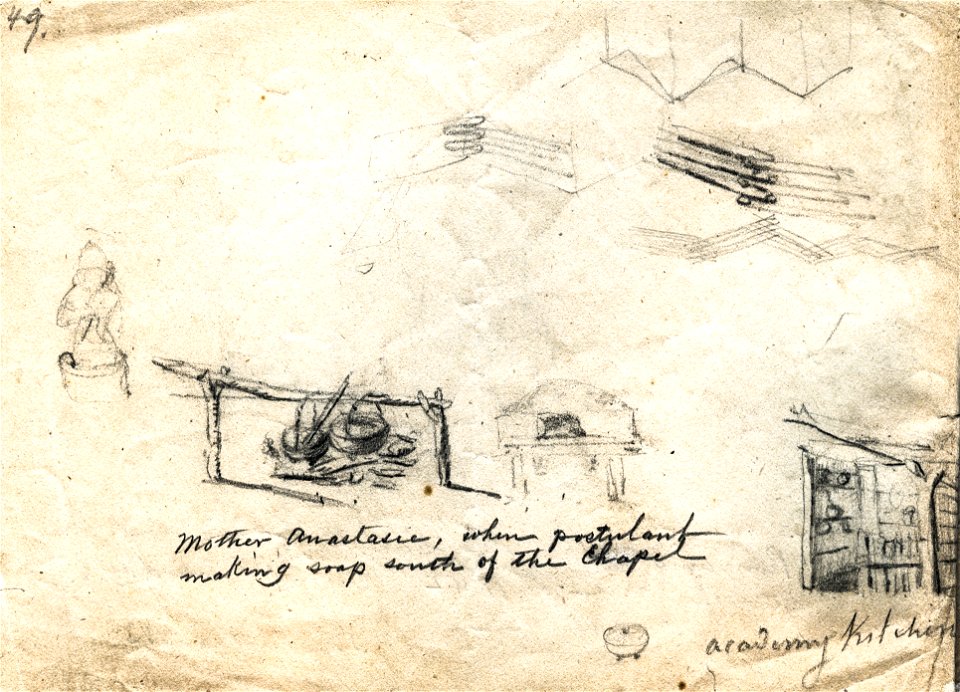 49.
Mother Anastasie, when postulant
making soap south of the Chapel
academy Kitchen